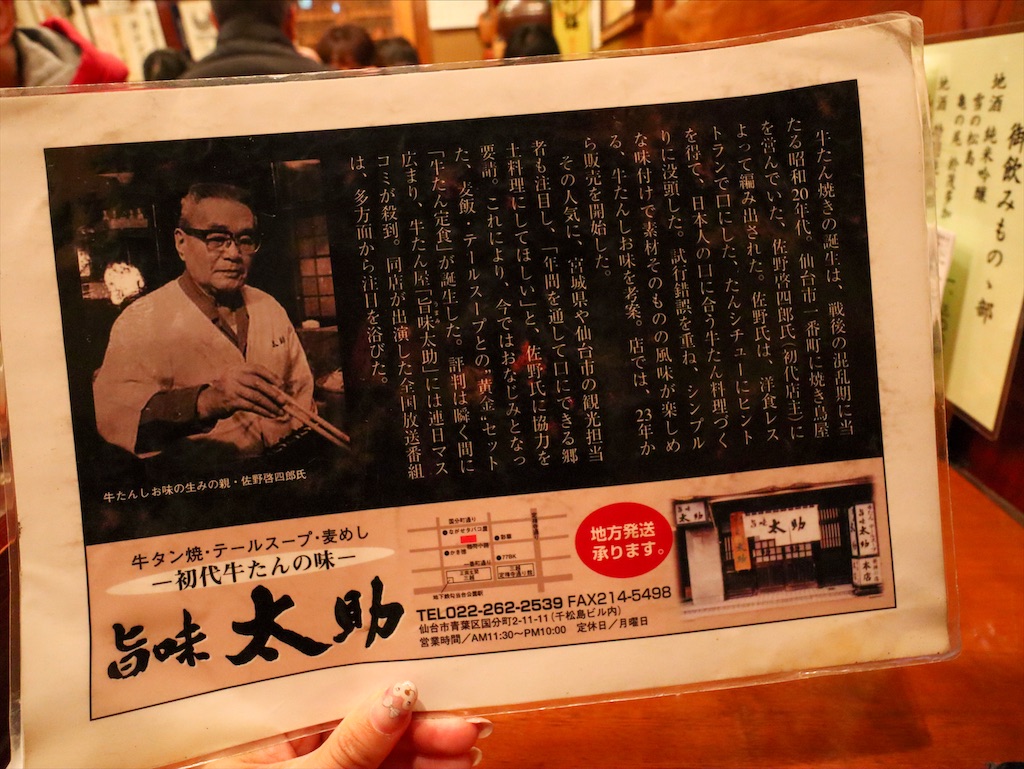 牛たん焼きの誕生は、戦後の混乱期に当
たる昭和20年代。仙台市一番町に焼き鳥屋
を営んでいた、佐野啓四郎氏(初代店主)に
よって編み出された。佐野氏は、洋食レス
トランで口にした、たんシチューにヒント
を得て、日本人の口に合う牛たん料理づく
りに没頭した。試行錯誤を重ね、シンプル
な味付けで素材そのものの風味が楽しめ
る、牛たんしお味を考案。店では、23年か
ら販売を開始した。
その人気に、宮城県や仙台市の観光担当
者も注目し、「年間を通して口にできる郷
土料理にしてほしい」と、佐野氏に協力を
要請。これにより、今ではおなじみとなっ
た、麦飯・テールスープとの“黄金”セット
「牛たん定食」が誕生した。評判は瞬く間に
広まり、牛たん屋「旨味太助」には連日マス
コミが殺到。同店が出演した全国放送番組
は、多方面から注目を浴びた。
太助
牛たんしお味の生みの親・佐野啓四郎氏
牛タン焼・テールスープ・麦めし
ー初代牛たんの味ー
旨味 太助
国分町通り
●ながせタバコ屋
●かき徳
一番町通り
●77BK
三越
地下鉄勾当台公園駅
地方発送
承ります。
TEL022-262-2539 FAX214-5498
仙台市青葉区国分町2-11-11(千松島ビル内)
営業時間/AM11:30〜PM10:00 定休日/月曜日
太助
旨味 太助
太助 本店
御飲みもの、部
地酒 純米吟醸
雪の松島
亀の尾
地酒